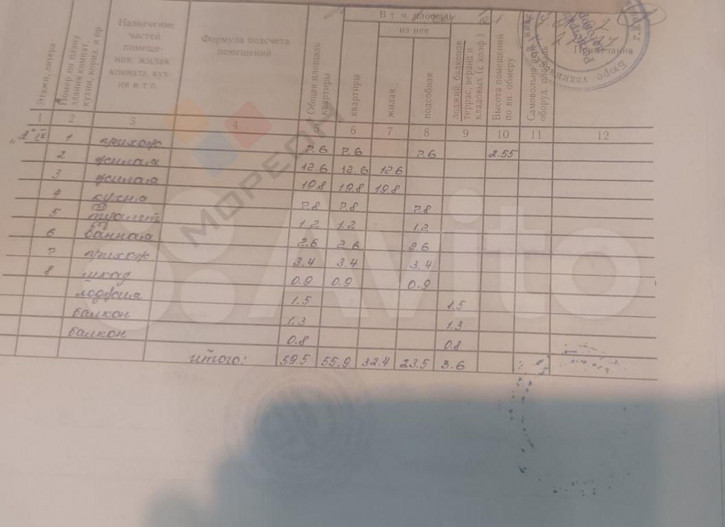 Этажи, литера
Номер по плану здания комнат, кухни, корид. и пр.
Назначение частей помещения: жилая комната, кухня и т.п.
Формула подсчета помещений
Общая площадь квартиры
В т. ч. площадь
квартиры
из нее
жилая
подсобная
лоджий, балконов террас, веранд и кладовых (с коэф.)
Высота помещений по вн. обмеру
Примечания
1 2 3 4 6 7 8 9 10 11 12
1 прихож 7.6 7.6 7.6 2.55
2 жилая 12.6 12.6 12.6
3 жилая 19.8 19.8 19.8
4 кухня 7.8 7.8 7.8
5 туалет 1.2 1.2 1.2
6 ванная 2.6 2.6 2.6
7 прихож 3.4 3.4 3.4
8 шкаф 0.9 0.9 0.9
лоджия 1.5 1.5
балкон 1.3 1.3
балкон 0.8 0.8
итого: 59.5 55.9 32.4 23.5 3.6
МОРЕОН
Avito